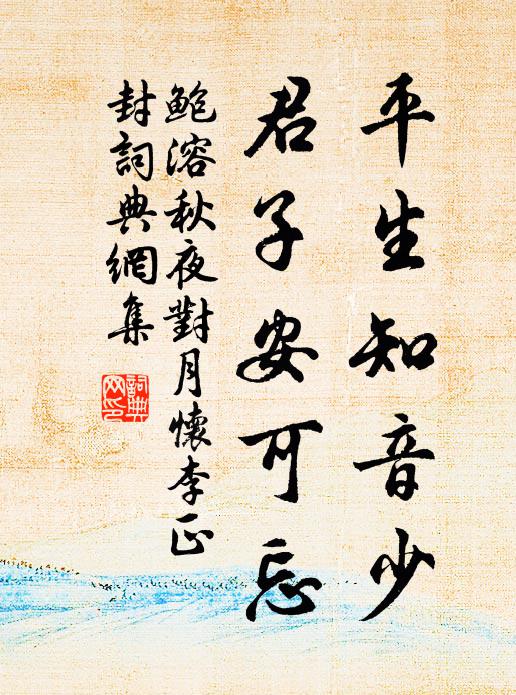 平生知音少
君子安可忘
鮑溶秋夜對月懷李正
封詞典網集
詞典
网印